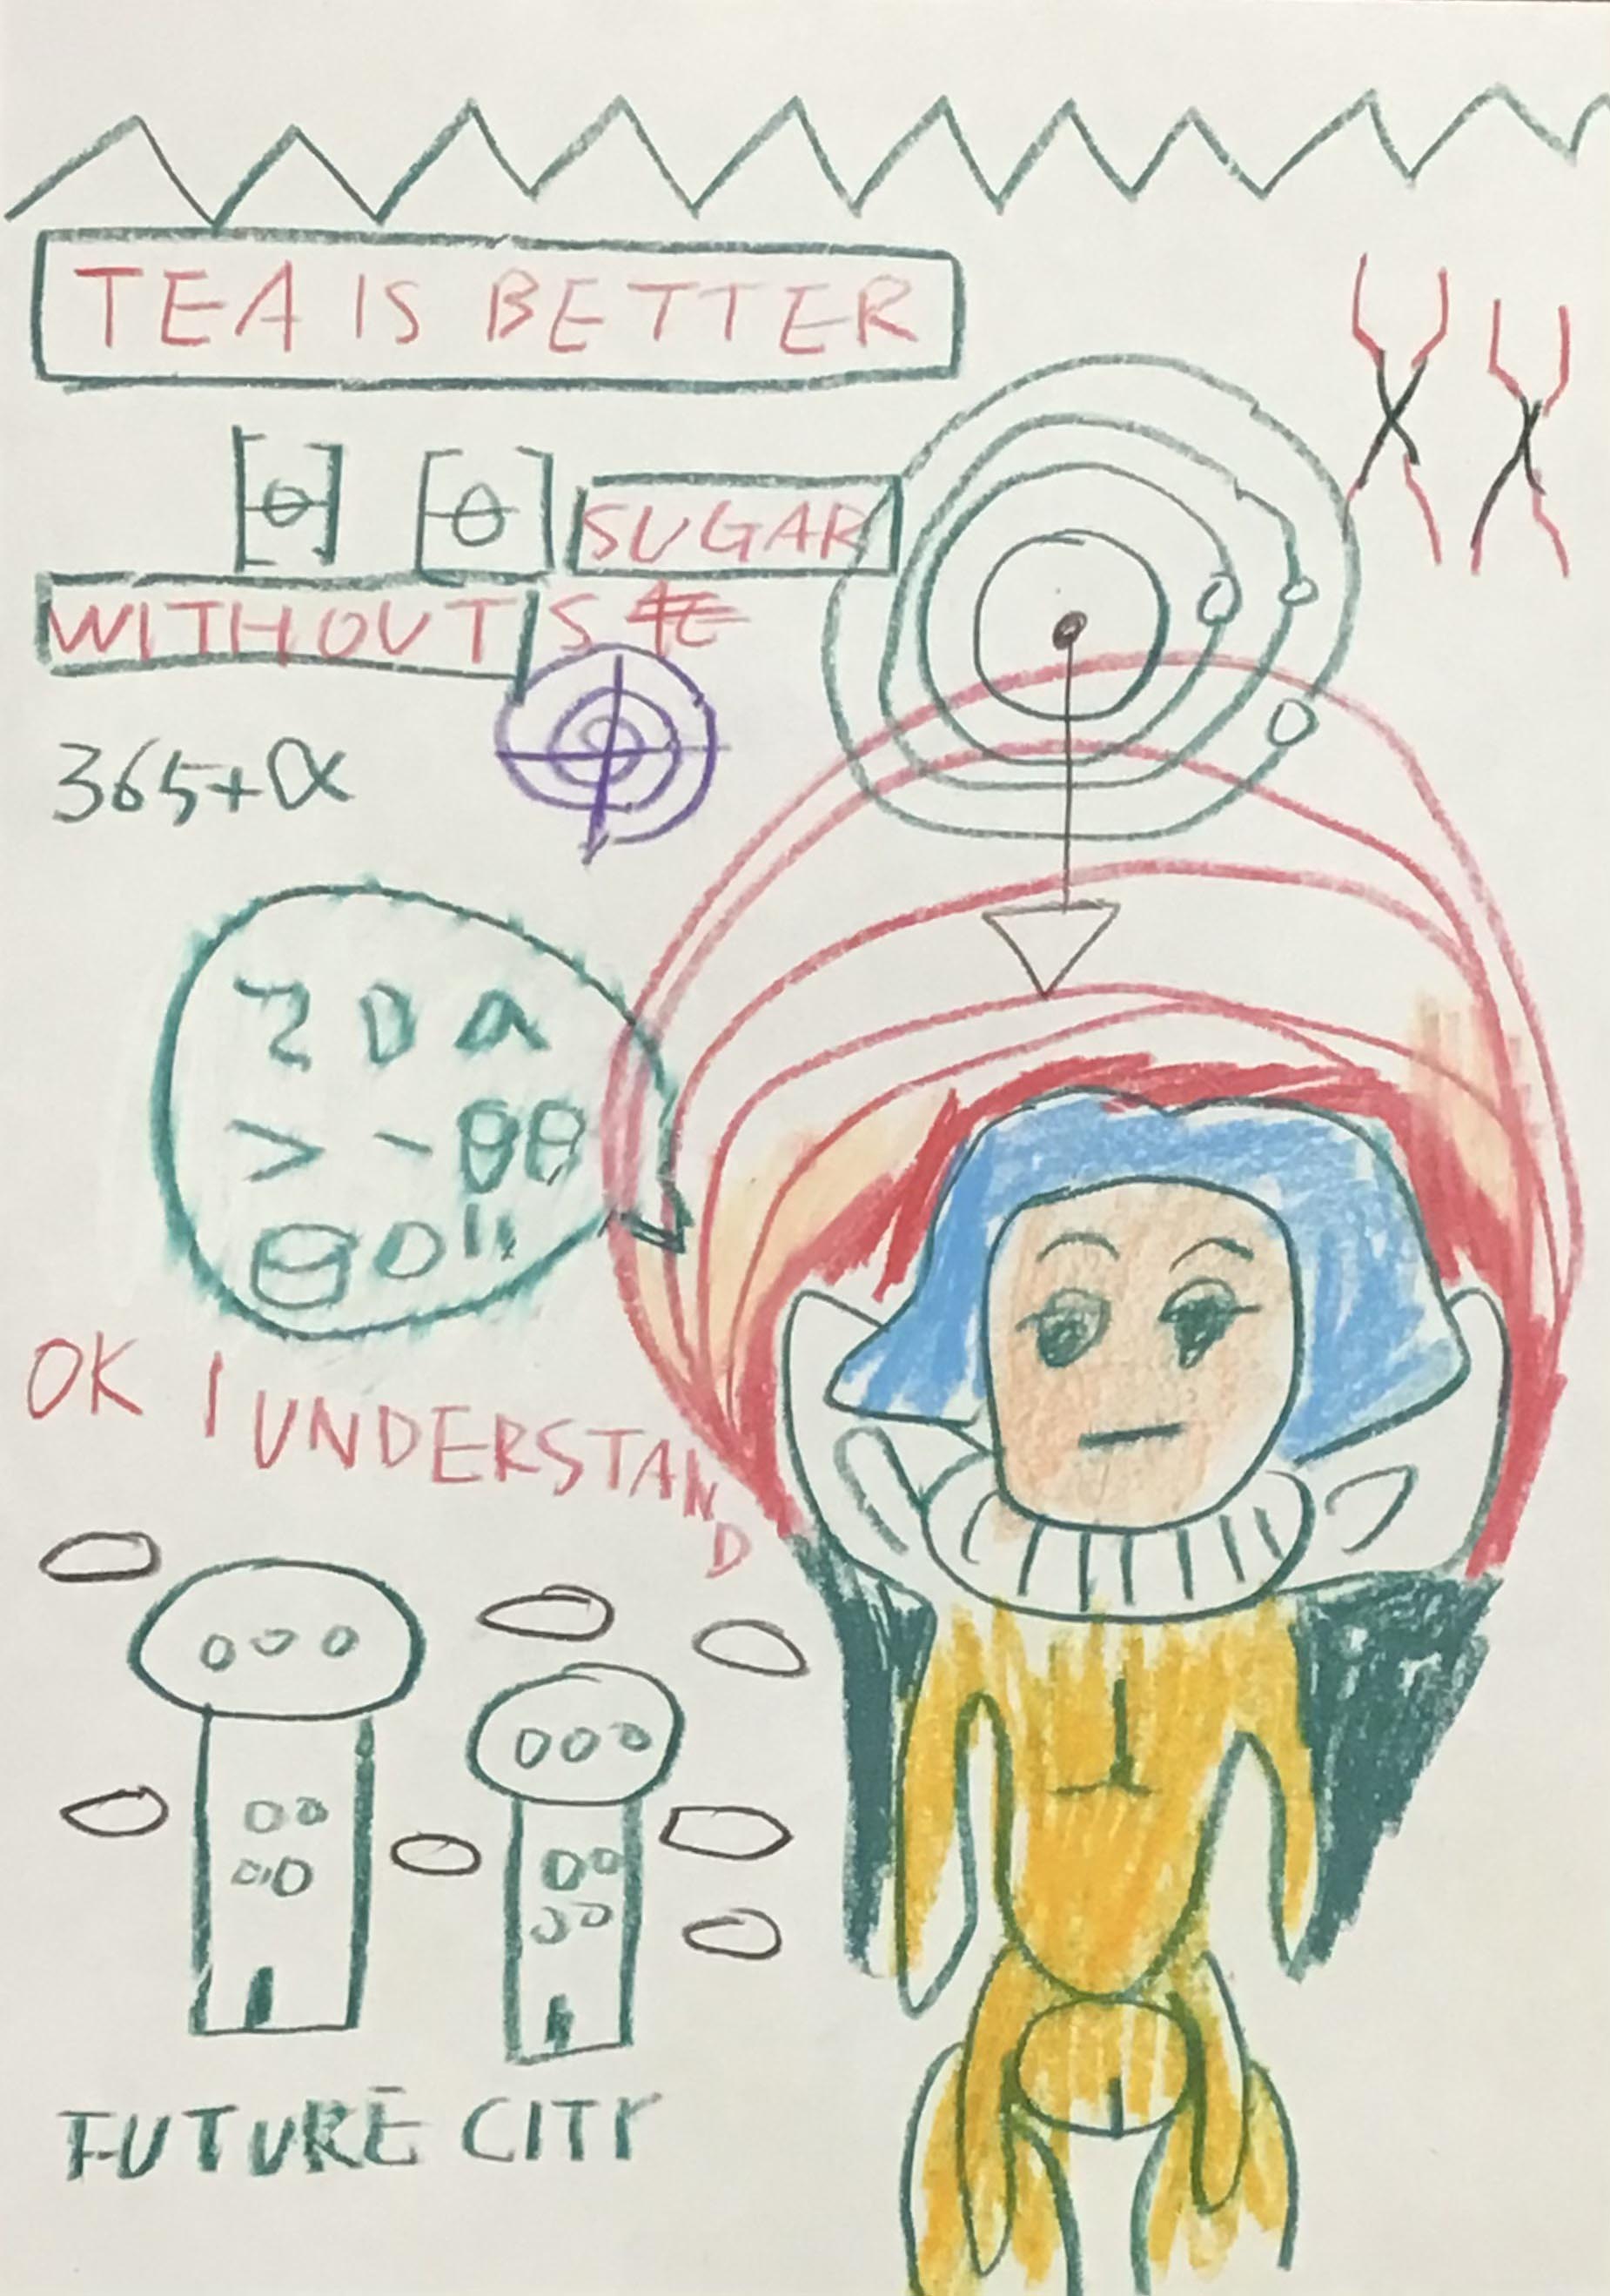 TEA IS BETTER
SUGAR
WITHOUT S
365+α
OK I UNDERSTAND
FUTURE CITY